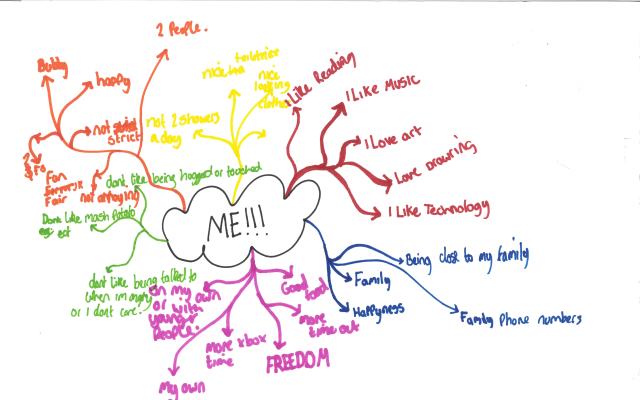 2 People.
Bubbly
happy
not
strict
Fun
Fair
not annoying
nice
toiletries
nice
looking
clothes
not 2 showers
a day
I Like Reading
I Like Music
I Love art
Love Drowring
I Like Technology
dont like being hogged or touched
Dont Like mash Potato
dont like being talked to
when im angry
or I dont care.
ME!!!
Being close to my family
Family
Happyness
Family Phone numbers
Good
food
more
time out
FREEDOM
more xbox
time
My own
on my own
or with
younger
People.